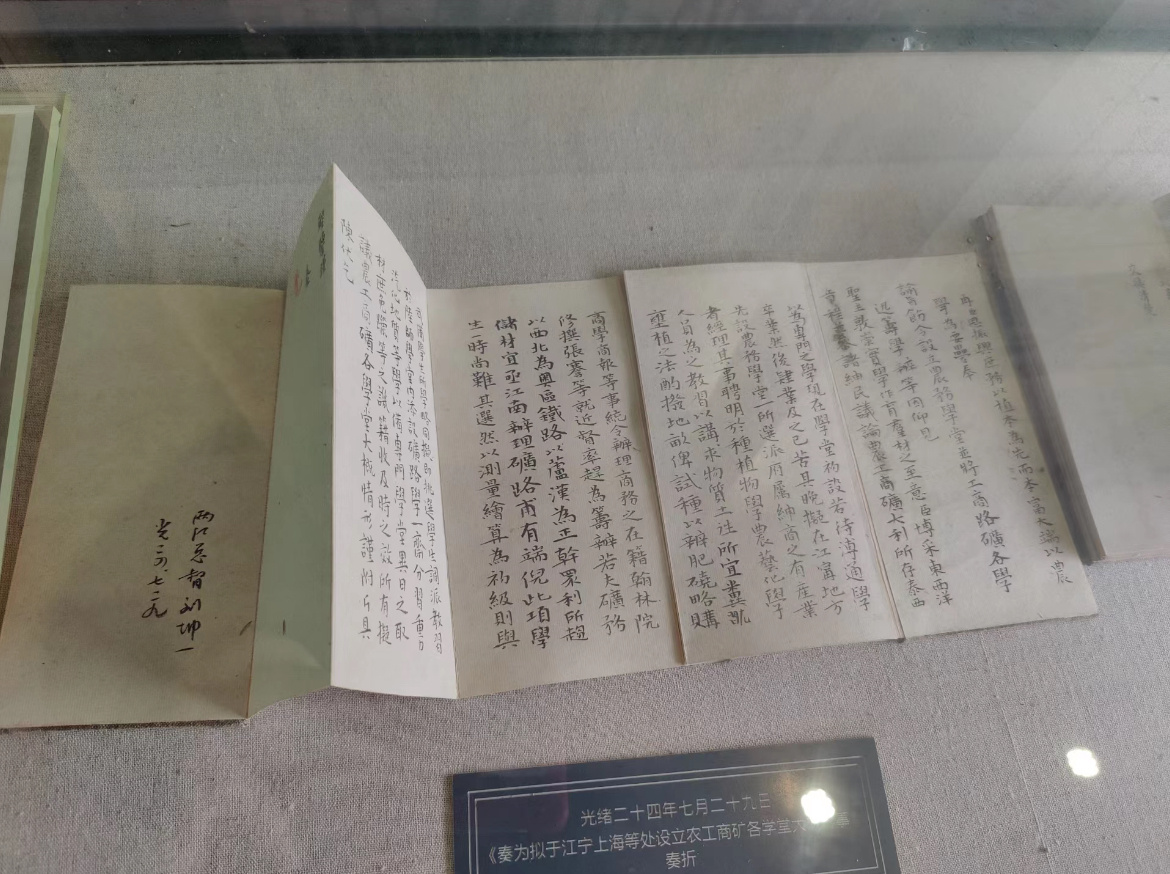 再日思振興庶務以植本為先而本富大端以農
學為要疊奉
諭旨飭令設立農務學堂並將工商路礦各學
迅籌學
等因仰見
聖主
實學作育羣材之至意臣博采東西洋
諸紳民議論農工商礦大利所存泰西
以為專門之學現在學堂初設若待溥通學
卒業然後肄業及之已苦其晚擬在江甯地方
先設農務學堂一所選派府屬紳商之有產業
者經理其事聘明於種植物學農藝化學
人員為之教習以講求物質土性所宜糞溉
壅植之法酌撥地畝俾試種以辨肥磽略購
商學商報等事統令辦理商務之在籍翰林院
修撰張謇等就近督率趕為籌辦若夫礦務
以西北為奧區鐵路以蘆漢為正幹眾利所趨
儲材宜亟江南辦理礦路甫有端倪此項學
生一時尚難其選然以測量繪算為初級則與
武備學生所學略同擬即挑選學生調派教習
於陸師學堂內添設礦路學一齋分習重力
汽化地質等學以備專門學堂異日之取
材庶免躐等之譏藉收及時之效所有擬
議農工商礦各學堂大概情形謹附片具
陳伏乞
兩江總督劉坤一
光二四、七、二九
光绪二十四年七月二十九日
《奏为拟于江宁上海等处设立农工商矿各学堂
奏折